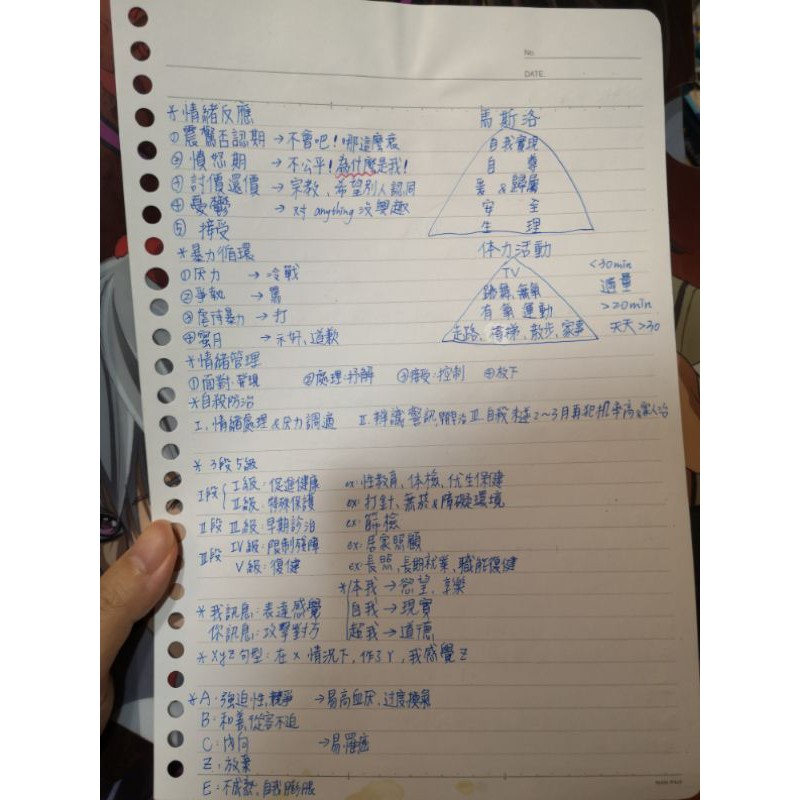 No.
DATE.
*情緒反應
①震驚否認期→不會吧！哪這麼衰
②憤怒期→不公平！為什麼是我！
③討價還價→宗教、希望別人認同
④憂鬱→对anything沒興趣
⑤接受
馬斯洛
自我實現
自尊
愛&歸屬
安全
生理
*暴力循環
①压力→冷戰
②爭執→罵
③虐待暴力→打
④蜜月→示好、道歉
体力活動
TV
<30min
適量
有氧運動
>20min
走路、樓梯、散步、家事
天天>30
*情緒管理
①面對 ②處理:抒解 ③接受:控制 ④放下
*自殺防治
I、情緒處理&压力調適 II、辨識警訊 III、自我 2~3月再犯機率高
*3段5級
I段 I級:促進健康 ex:性教育、体檢、优生保健
II級:特殊保護 ex:打針、無菸&障礙環境
II段 III級:早期診治 ex:篩檢
III段 IV級:限制殘障 ex:居家照顧
V級:復健 ex:長照、長期就業、職能復健
*本我→慾望、享樂
自我→現實
超我→道德
*我訊息:表達感覺
你訊息:攻擊對方
*XYZ句型:在X情況下,作了Y,我感覺Z
*A:強迫性,競爭→易高血压,过度換氣
B:和善,從容不迫
C:内向→易罹癌
Z:放棄
E:不成熟,自我膨脹